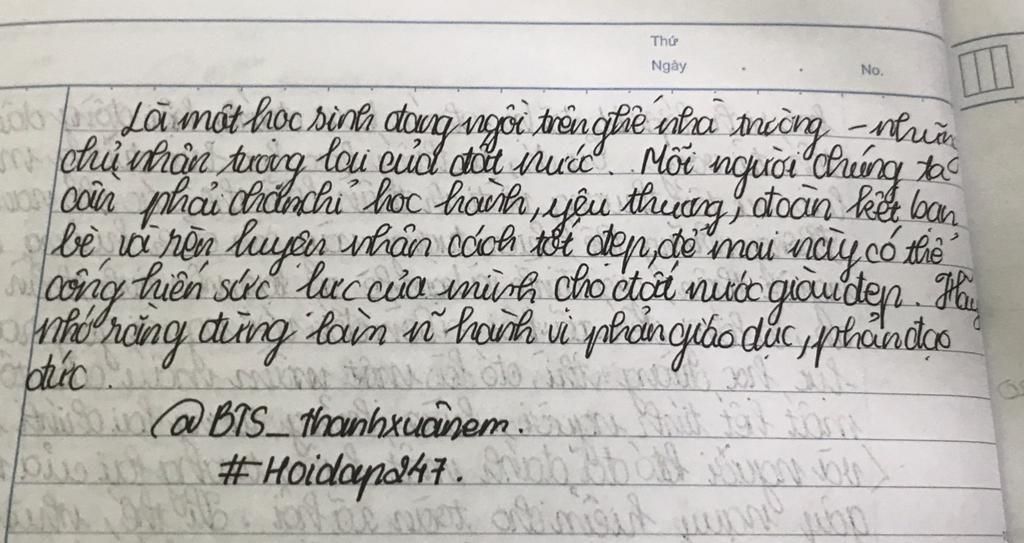 Thứ
Ngày . . No.
Là một học sinh đang ngồi trên ghế nhà trường - những
chủ nhân tương lai của đất nước. Mỗi người chúng ta
cần phải chăm chỉ học hành, yêu thương, đoàn kết bạn
bè và rèn luyện nhân cách tốt đẹp, để mai này có thể
cống hiến sức lực của mình cho đất nước giàu đẹp. Hãy
nhớ rằng đừng làm n~ hành vi phản giáo dục, phản đạo
đức.
@BTS_thanhxuânem.
#Hoidap247.